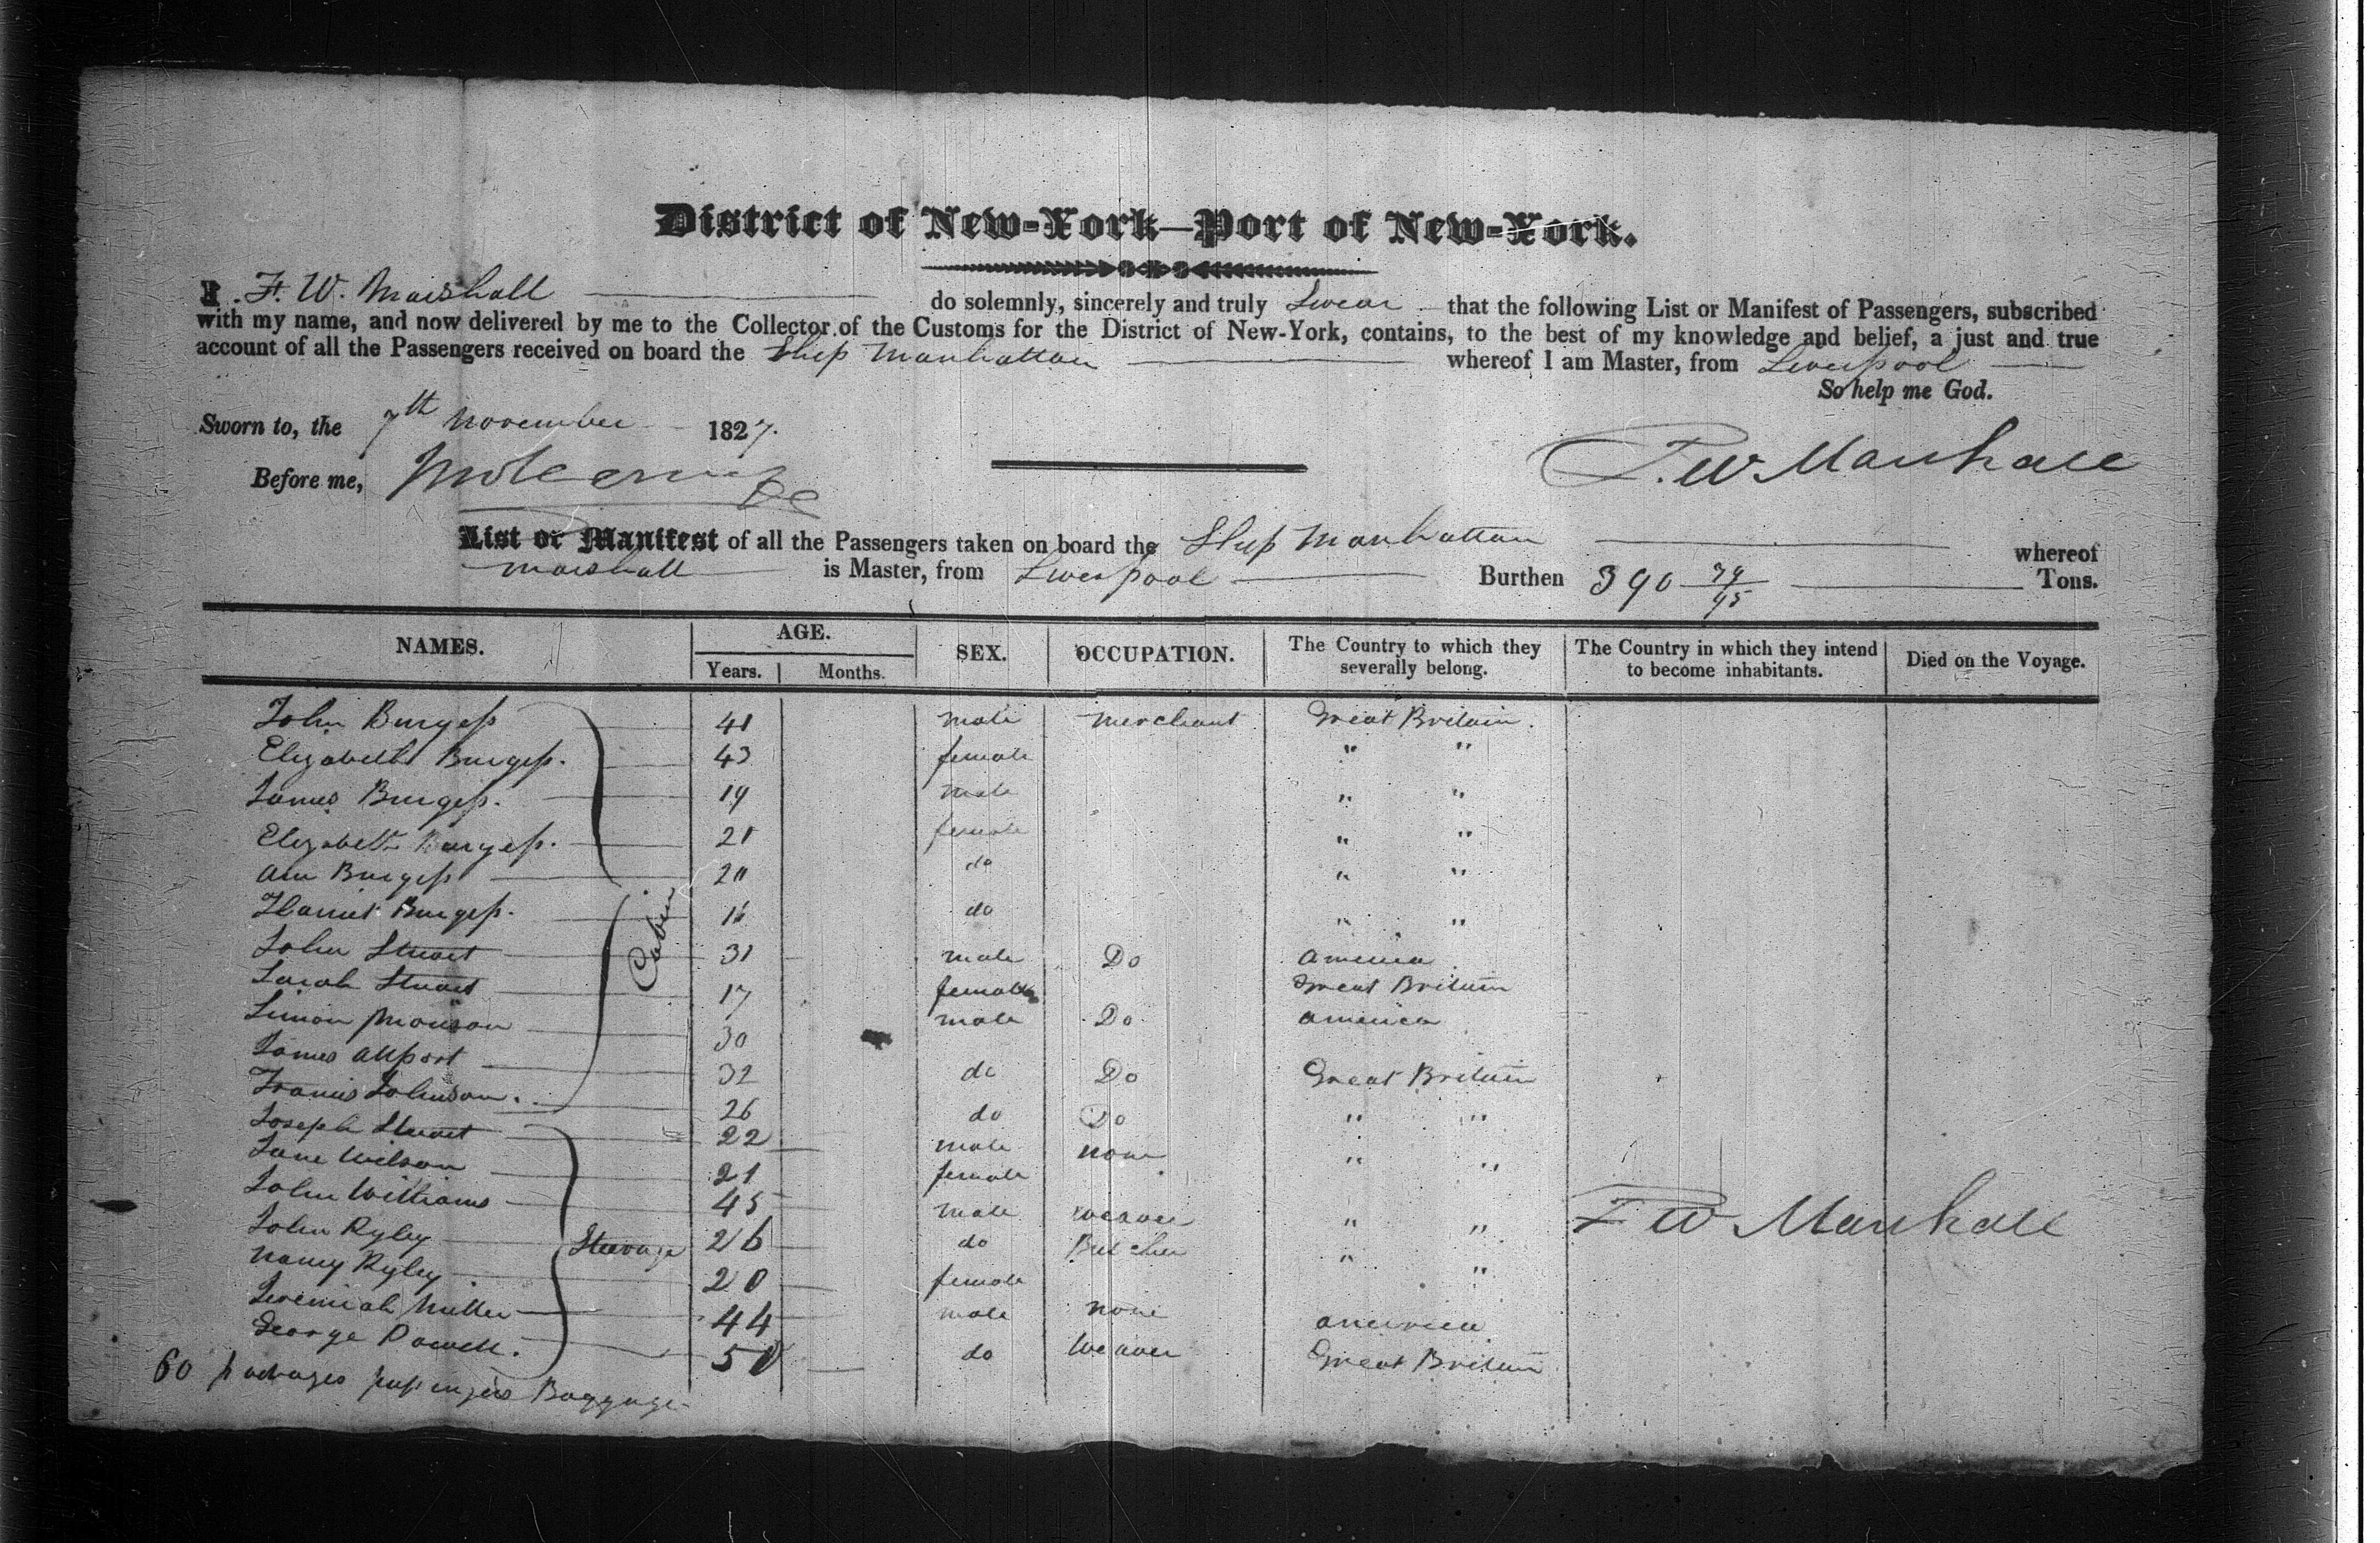 District of New-York—Port of New-York.
I F. W. Marshall do solemnly, sincerely and truly Swear that the following List or Manifest of Passengers, subscribed
with my name, and now delivered by me to the Collector of the Customs for the District of New-York, contains, to the best of my knowledge and belief, a just and true
account of all the Passengers received on board the Ship Manhattan whereof I am Master, from Liverpool
So help me God.
Sworn to, the 7th November 1827.
F. W Marshall
Before me,
List or Manifest of all the Passengers taken on board the Ship Manhattan whereof
Marshall is Master, from Liverpool Burthen 390 Tons.
NAMES. AGE. Years. Months. SEX. OCCUPATION. The Country to which they severally belong. The Country in which they intend to become inhabitants. Died on the Voyage.
John Burgess 41 male merchant Great Britain.
Elizabeth Burgess. 43 female " "
James Burgess. 19 male " "
Elizabeth Burgess. 21 female " "
Ann Burgess 20 do " "
Harriet Burgess. do " "
Cabin
John Stuart 31 male Do America
Sarah Stuart 17 female Great Britain
Simon Monson 30 male Do America
James Allport 32 do Do Great Britain
Francis Johnson. 26 do Do " "
Joseph Stuart 22 male none " "
Jane Wilson 21 female
John Williams 45 male weaver " "
John Ryley 26 do Butcher " "
Steerage
Nancy Ryley 20 female
Jeremiah Miller 44 male none America
George Powell. do Weaver Great Britain
F W Marshall
60 packages passengers Baggage